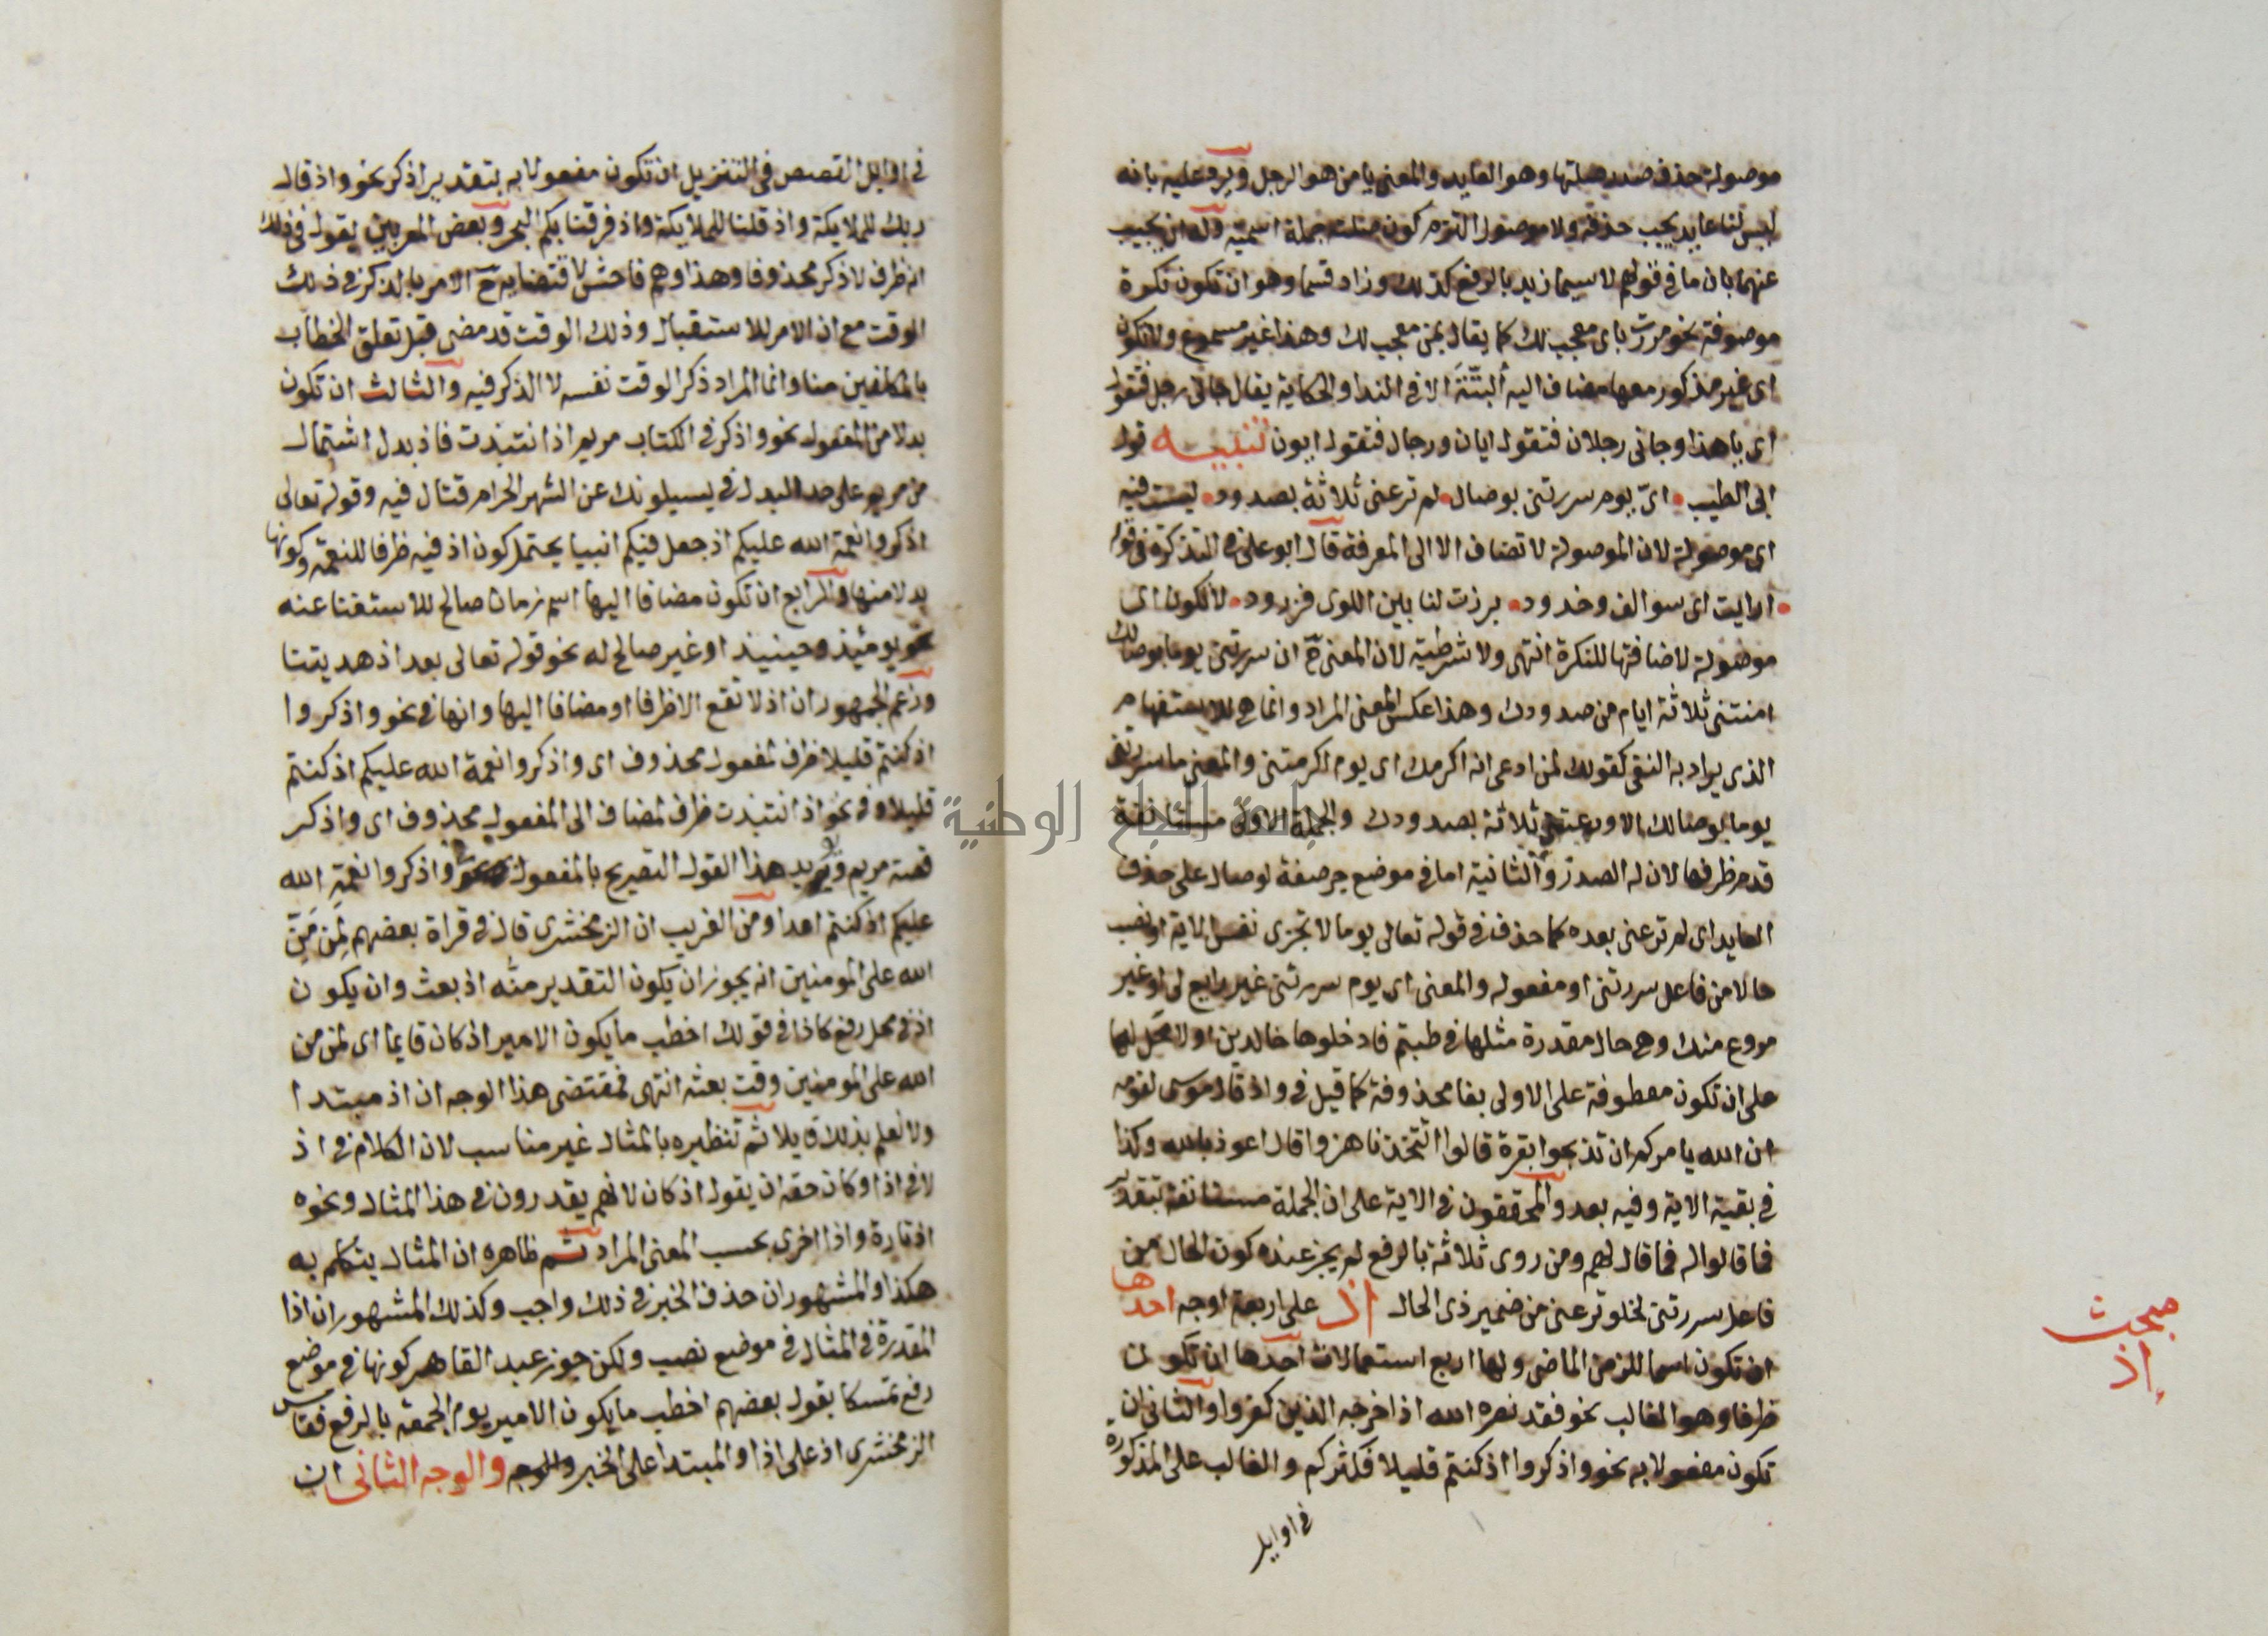 موصولة حذف صدر صلتها وهو العايد والمعنى يا من هو الرجل ويرد عليه بانه
ليس لنا عايد يجب حذفه ولا موصول التزم كون صلته جملة اسمية وله ان يجيب
عنهما بان ما في قولهم لا سيما زيد بالرفع كذلك وزاد قسما وهو ان تكون نكرة
موصوفة نحو مررت باى معجب لك كما يقال بمن معجب لك وهذا غير مسموع ولا تكون
اى غير مذكور معها مضاف اليه ألبتّتَة الا في الندا والحكاية يقال جانى رجل فتقول
اى يا هذا وجانى رجلان فتقول ايان ورجال فتقول ايون تنبيه قول
ابى الطيب • اىّ يوم سررتنى بوصال • لم ترعنى ثلاثة بصدود • ليست فيه
اى موصولة لان الموصولة لا تضاف الا الى المعرفة قال ابو على في التذكرة في قوله
• ارايت اى سوالف وخدود • برزت لنا بين اللوى فزرود • لا تكون اى
موصولة لاضافتها للنكرة انتهى ولا شرطية لان المعنى ح ان سررتنى يوما بوصالك
امنتنى ثلاثة ايام من صدودك وهذا عكس المعنى المراد وانما هى للاستفهام
الذى يراد به النفى كقولك لمن ادعى انه اكرمك اى يوم اكرمتنى والمعنى ما سررتنى
يوما بوصالك الا وروعتنى ثلاثة بصدودك والجملة الاولى مستانفة
قدم ظرفها لان له الصدر والثانية اما في موضع جر صفة لوصال على حذف
العايد اى لم ترعنى بعده كما حذف في قوله تعالى يوما لا تجزى نفس الاية او نصب
حالا من فاعل سررتنى او مفعوله والمعنى اى يوم سررتنى غير رايع لى او غير
مروع منك وهى حال مقدرة مثلها في طبتم فادخلوها خالدين اولا محل لها
على ان تكون معطوفة على الاولى بفا محذوفة كما قيل في واذ قال موسى لقومه
ان الله يامركم ان تذبحوا بقرة قالوا اتتخذنا هزوا قال اعوذ بالله وكذا
في بقية الاية وفيه بعد والمحققون في الاية على ان الجملة مستانفة بتقدير
فما قالوا له فما قال لهم ومن روى ثلاثة بالرفع لم يجز عنده كون الحال من
فاعل سررتنى لخلو ترعنى من ضمير ذى الحال اذ على اربعة اوجه احدها
ان تكون اسما للزمن الماضى ولها اربع استعمالات احدها ان تكون
ظرفا وهو الغالب نحو فقد نصره الله اذ اخرجه الذين كفروا والثانى ان
تكون مفعولا به نحو واذكروا اذ كنتم قليلا فكثركم والغالب على المذكورة
في اوايل
مبحث
إذ
في اوايل القصص في التنزيل ان تكون مفعولا به بتقدير اذكر نحو واذ قال
ربك للملايكة واذ قلنا للملايكة واذ فرقنا بكم البحر وبعض المعربين يقول في ذلك
انه ظرف لاذكر محذوفا وهذا وهم فاحش لاقتضايه ح الامر بالذكر في ذلك
الوقت مع ان الامر للاستقبال وذلك الوقت قد مضى قبل تعلق الخطاب
بالمكلفين منا وانما المراد ذكر الوقت نفسه لا الذكر فيه والثالث ان تكون
بدلا من المفعول نحو واذكر في الكتاب مريم اذ انتبذت فاذ بدل اشتمال
من مريم على حد البدل في يسيلونك عن الشهر الحرام قتال فيه وقوله تعالى
اذكروا نعمة الله عليكم اذ جعل فيكم انبيا يحتمل كون اذ فيه ظرفا للنعمة وكونها
بدلا منها والرابع ان تكون مضافا اليها اسم زمان صالح للاستغنا عنه
نحو يوميذ وحينيذ او غير صالح له نحو قوله تعالى بعد اذ هديتنا
وزعم الجمهور ان اذ لا تقع الا ظرفا او مضافا اليها وانها في نحو واذكروا
اذ كنتم قليلا ظرف لمفعول محذوف اى واذكروا نعمة الله عليكم اذ كنتم
قليلا وفي نحو اذ انتبذت ظرف لمضاف الى المفعول محذوف اى واذكر
قصة مريم ويؤيد هذا القول التصريح بالمفعول نحو واذكروا نعمة الله
عليكم اذ كنتم اعدا ومن الغريب ان الزمخشرى قال في قراة بعضهم لَمِن مَنِّ
الله على المومنين انه يجوز ان يكون التقدير منّه اذ بعث وان يكون
اذ في محل رفع كاذا في قولك اخطب ما يكون الامير اذ كان قايما اى لمن من
الله على المومنين وقت بعثه انتهى فمقتضى هذا الوجه ان اذ مبتدا
ولا نعلم بذلك قايلا ثم تنظيره بالمثال غير مناسب لان الكلام في اذ
لا في اذا وكان حقه ان يقول اذ كان لانهم يقدرون في هذا المثال ونحوه
اذ تارة واذا اخرى بحسب المعنى المراد ثم ظاهره ان المثال يتكلم به
هكذا والمشهور ان حذف الخبر في ذلك واجب وكذلك المشهور ان اذا
المقدرة في المثال في موضع نصب ولكن جوز عبد القاهر كونها في موضع
رفع تمسكا بقول بعضهم اخطب ما يكون الامير يوم الجمعة بالرفع فقاس
الزمخشرى اذ على اذا والمبتدا على الخبر والوجه والوجه الثانى ان
جامعة النجاح الوطنية